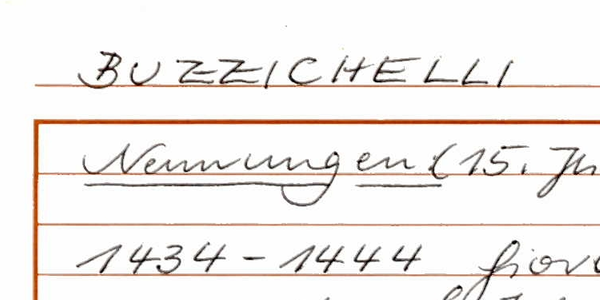 BUZZICHELLI
Nennungen (15. Jh
1434 - 1444 Giov